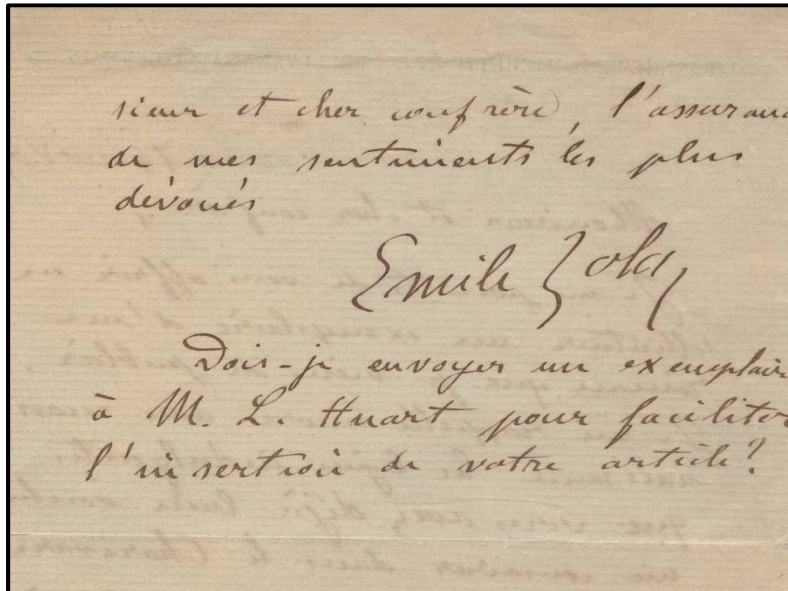 sieur et cher confrère, l'assuranc
de mes sentiments les plus
dévoués
Emile Zola
Dois-je envoyer un exemplaire
à M. L. Huart pour faciliter
l'insertion de votre article?